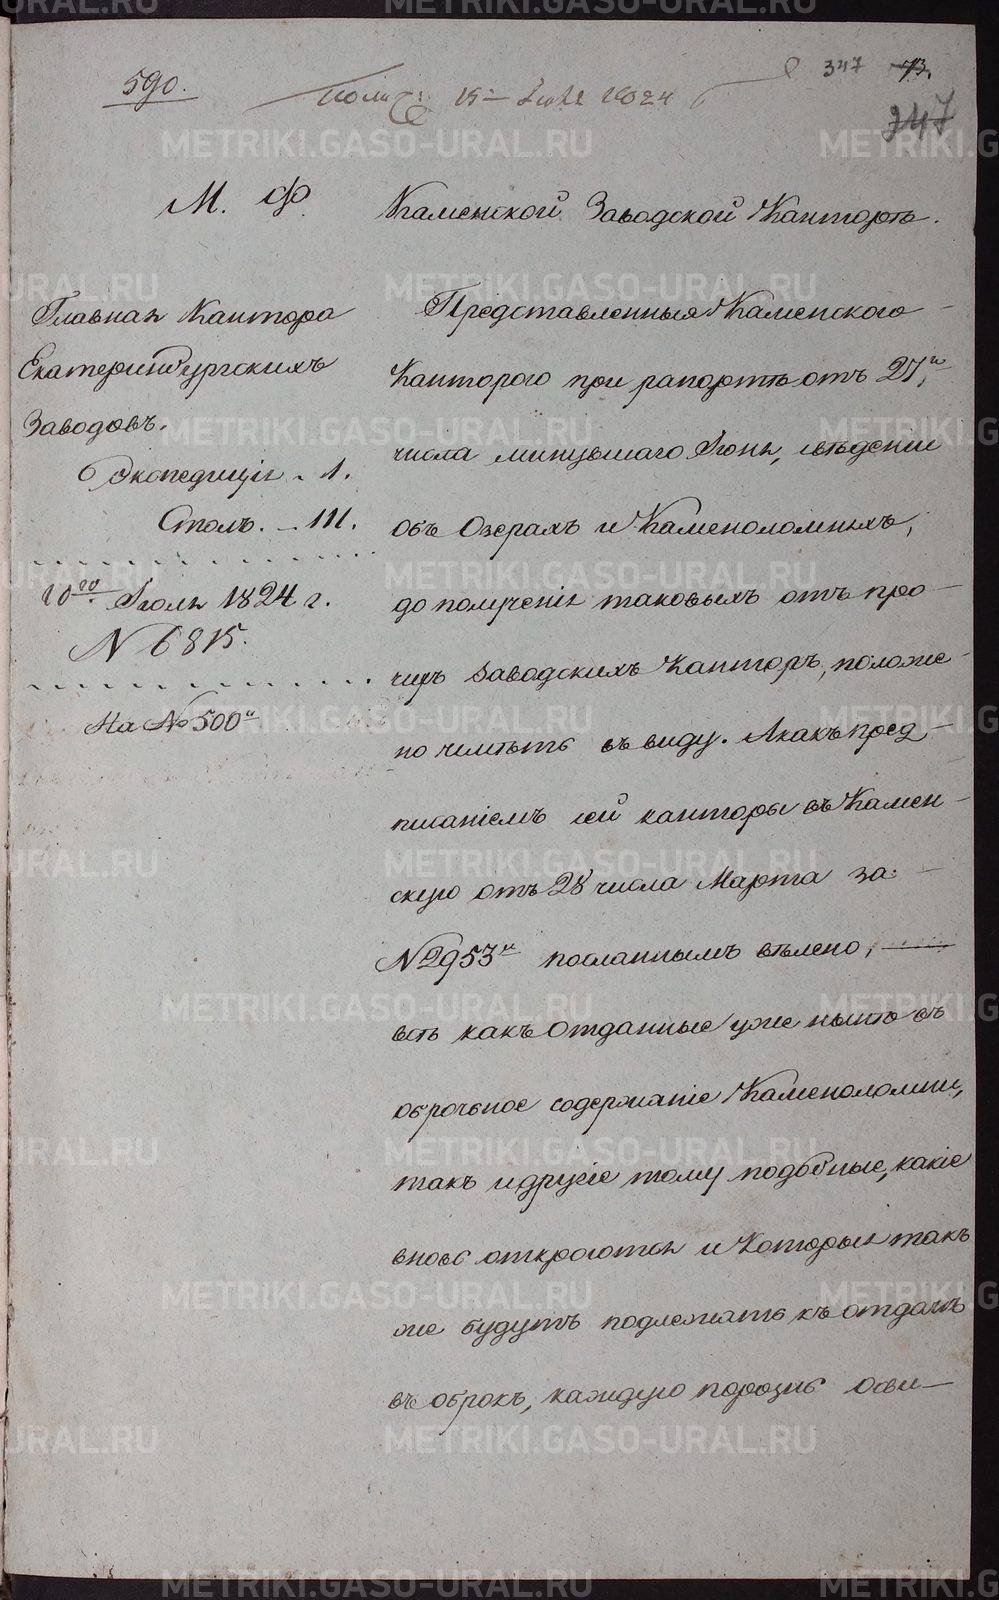 590.
Получ: 15 Июля 1824
347
73.
247
М. Ф.
Каменской Заводской Канторѣ.
Главная Кантора
Екатеринбургскихъ
Заводовъ.
Экспедиціи 1.
Столъ. III.
10го Іюля 1824 г.
N 6815.
На № 500й
Представленныя Каменскою
Канторою при рапортѣ отъ 27го
числа минувшаго Іюня, свѣденіи
объ Озерахъ и Каменоломняхъ,
до полученія таковыхъ отъ про-
чихъ Заводскихъ Канторъ, положе-
но имѣть въ виду. А какъ пред-
писаніемъ сей канторы въ Камен-
скую отъ 28 числа Марта за
№ 2953м посланнымъ велено,
есть какъ отданные уже нынѣ въ
оброчьное содержаніе Каменоломни,
такъ и другіе тому подобные, какіе
вновь откроются и которыя так
же будутъ подлежать къ отдачѣ
въ оброкъ, каждую порознь осви-
METRIKI.GASO-URAL.RU